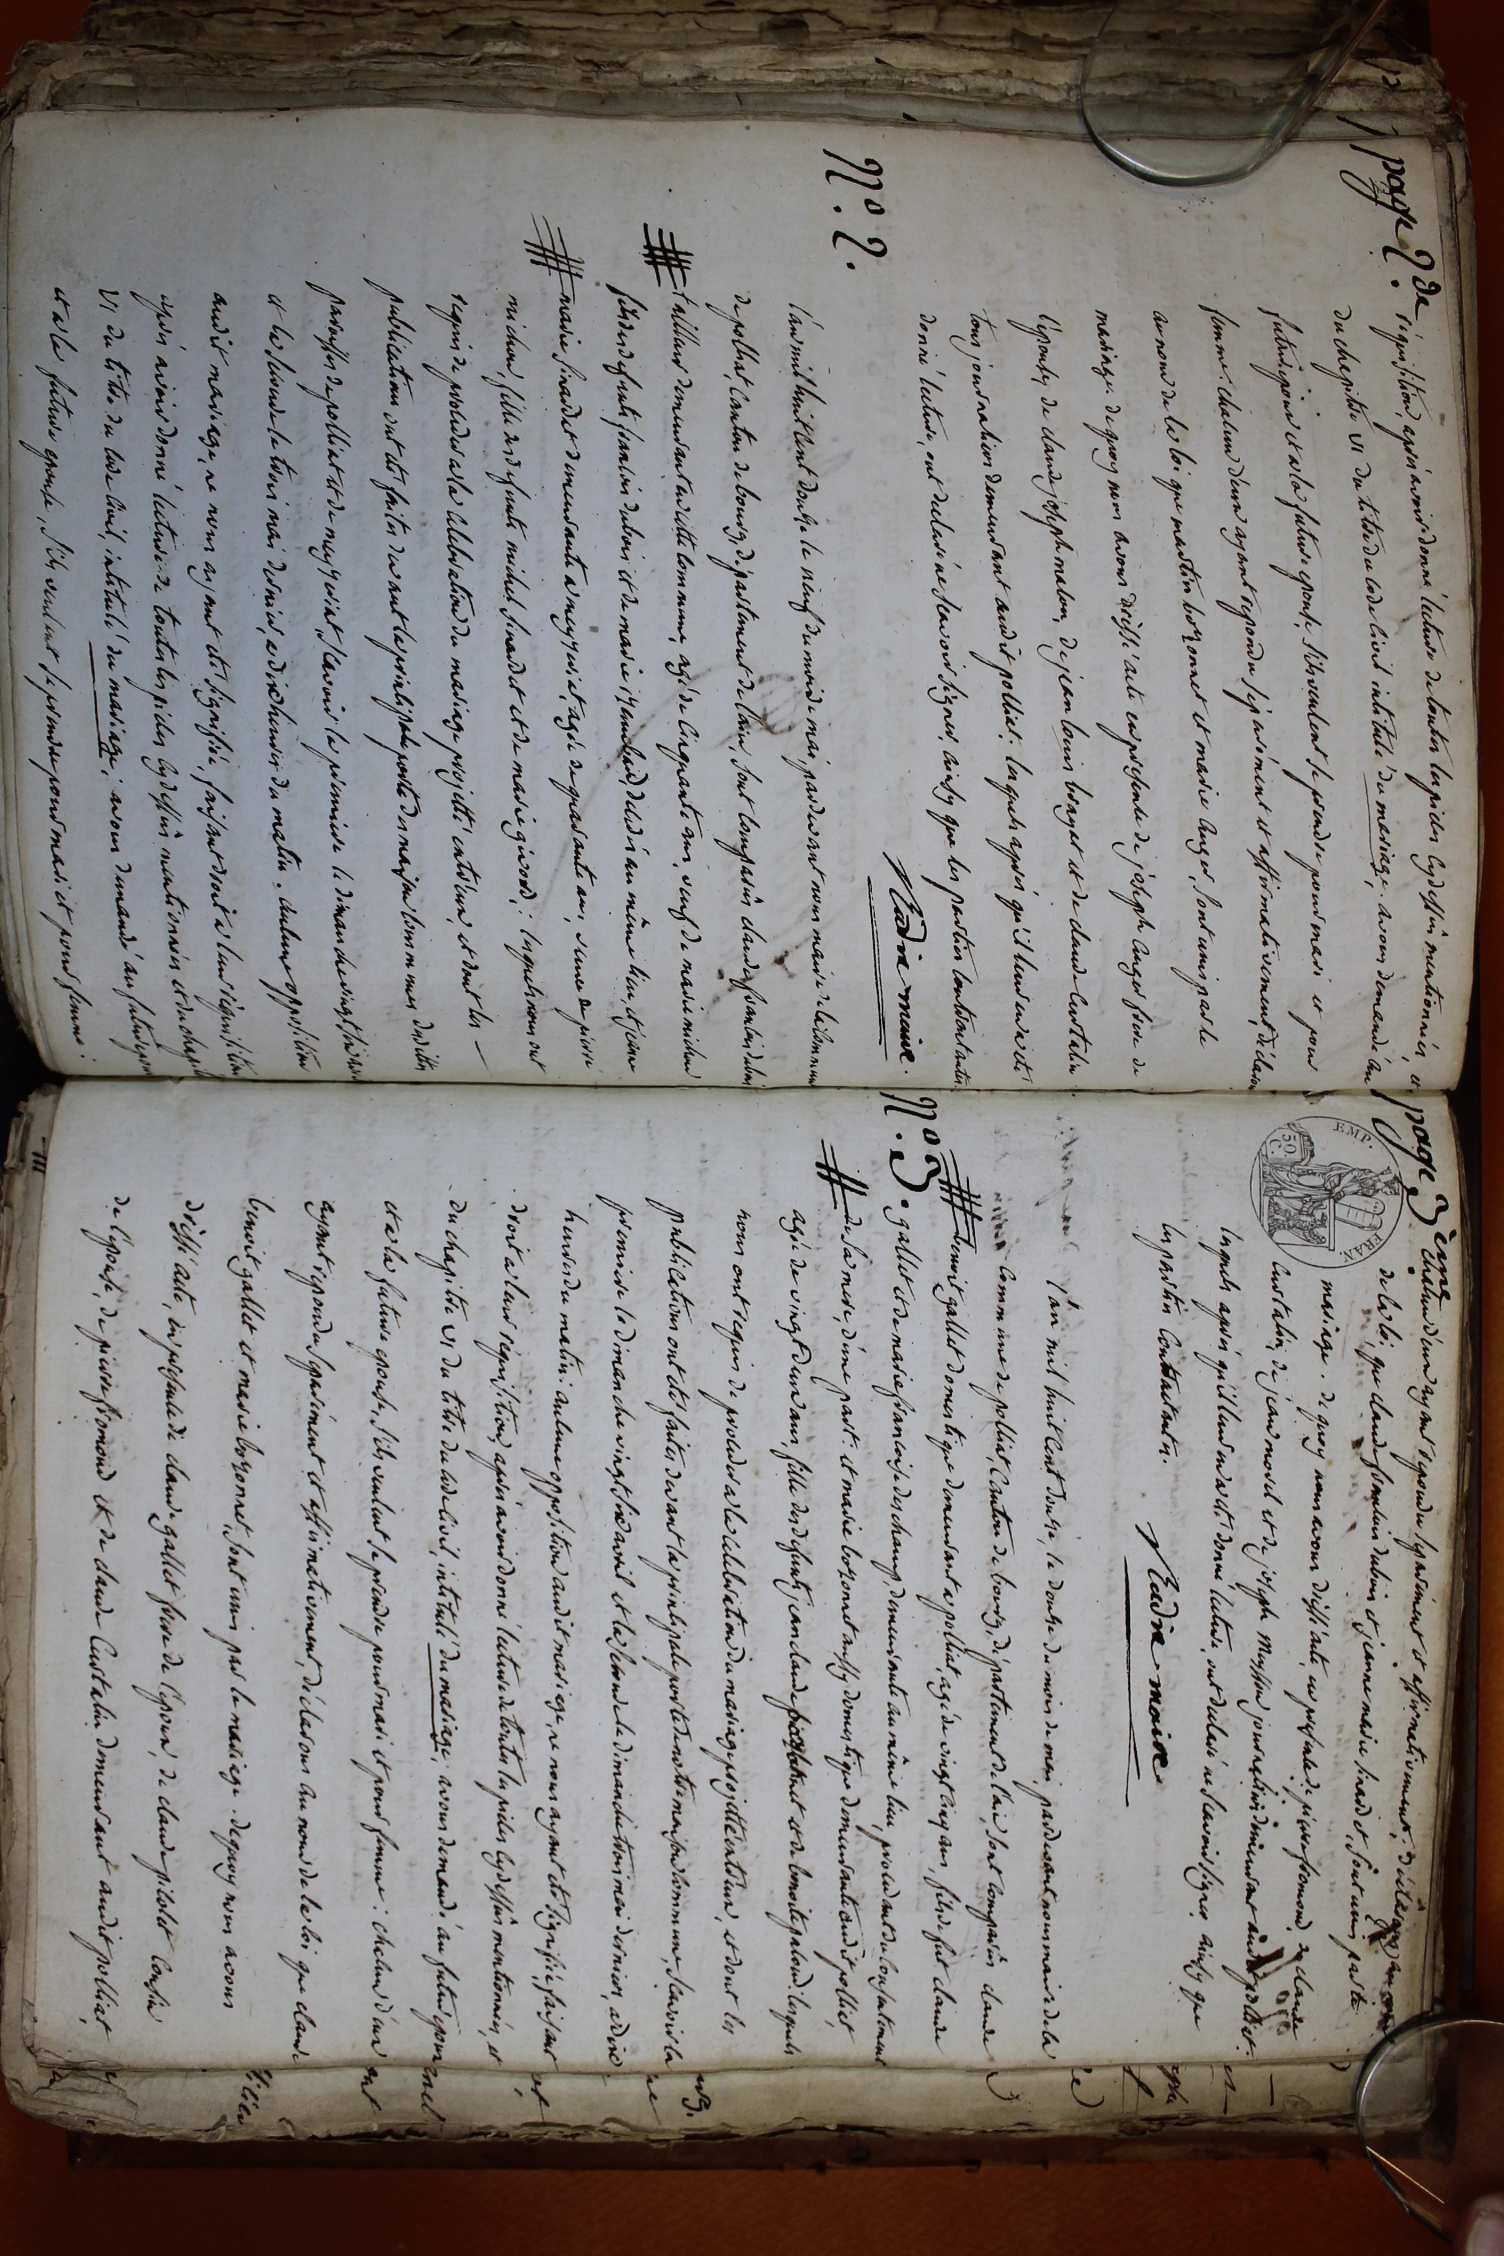 page 2de
réquisition, après avoir donné lecture de toutes les pièces cy dessus mentionnées, et
du chapitre VI du titre du code civil intitulé du mariage, avons demandé au
futur époux et à la future épouse, s'ils veulent se prendre pour mari et pour
femme: chacun d'eux ayant répondu séparément et affirmativement, déclarons
au nom de la loi que martin bozonnet et marie auger, sont unis par le
mariage. de quoy nous avons dressé acte en présence de joseph auger frère de
l'épouse, de claude joseph malon, de jean louis brayet et de claude curtalin
tous journaliers demeurant audit polliat: lesquels après qu'il leur en a été
donné lecture, ont déclaré ne scavoir signer, ainsy que les parties contractantes.
maire.
N°. 2.
l'an mil huit cent douze, le neuf du mois de mai, pardevant nous maire de la commune
de polliat, canton de bourg, département de l'ain, sont comparus claude françois dubois
tailleur demeurant en cette commune, agé de cinquante ans, veuf de marie michon
fils des defunts françois dubois et de marie décédés au même lieu, et jeanne
marie sinardet demeurante a mezeriat, agée de quarante ans, veuve de pierre
michon, fille des defunts michel sinardet et de marie givord; lesquels nous ont
requis de proceder a la célébration du mariage projetté entr'eux, et dont les
publications ont été faites devant la principale porte des maisons communes desdittes
paroisses de polliat et de mezeriat, scavoir la premiere le dimanche vingt six avril
et la seconde le trois mai dernier, a dix heures du matin. aucune opposition
audit mariage, ne nous ayant été signifiée, faisant droit à leur réquisition
après avoir donné lecture de toutes les pièces cy dessus mentionnées et du chapitre
VI du titre du code civil, intitulé du mariage; avons demandé au futur époux
et a la future épouse, s'ils veulent se prendre pour mari et pour femme:
page 3ème
EMP. FRAN.
50 C.
chacun d'eux ayant répondu séparément et affirmativement; déclarons au nom
de la loi, que claude françois dubois et jeanne marie sinardet, sont unis par le
mariage. de quoy nous avons dressé acte, en présence de pierre fromond, de claude
curtalin, de jean morel et de joseph journaliers demeurant audit polliat:
lesquels après qu'il leur en a été donné lecture, ont déclaré ne scavoir signer, ainsy que
les parties contractantes.
maire
N°. 3.
l'an mil huit cent douze, le douze du mois de mai, pardevant nous maire de la
commune de polliat, canton de bourg, département de l'ain, sont comparus claude
benoit gallet domestique demeurant a polliat, agé de vingt cinq ans, fils de feu claude
gallet et de marie françoise deschamps, demeurante au même lieu, procédant du consentement
de sa mere, d'une part: et marie bozonnet aussy domestique demeurante audit polliat,
agée de vingt deux ans, fille des defunts jean claude bozonnet et de benoite lesquels
nous ont requis de proceder a la célébration du mariage projetté entr'eux, et dont les
publications ont été faites devant la principale porte de notre maison commune, scavoir la
premiere le dimanche vingt six avril et la seconde le dimanche trois mai dernier, a dix
heures du matin: aucune opposition audit mariage, ne nous ayant été signifiée, faisant
droit a leur réquisition, après avoir donné lecture de toutes les pièces cy dessus mentionnées, et
du chapitre VI du titre du code civil, intitulé du mariage, avons demandé au futur époux
et a la future épouse, s'ils veulent se prendre pour mari et pour femme: chacun d'eux
ayant répondu séparément et affirmativement, déclarons au nom de la loi que claude
benoit gallet et marie bozonnet, sont unis par le mariage. de quoy nous avons
dressé acte, en présence de claude gallet frère de l'époux, de claude cousin
de l'épouse, de pierre fromond et de claude curtalin demeurant audit polliat,